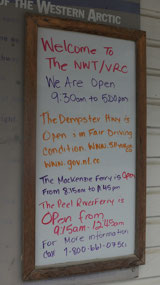 OF THE WESTERN ARCTIC
Welcome To
The NWT/VRC
We Are Open
9:30am to 5:00pm
The Dempster Hwy is
Open in Fair Driving
Condition. www.
www.gov.nt.ca
The Mackenzie Ferry is Open
From 8:15am to
The Peel River Ferry is
Open From
9:15am - 12:45am
For More information
Call 1-800-661-0750